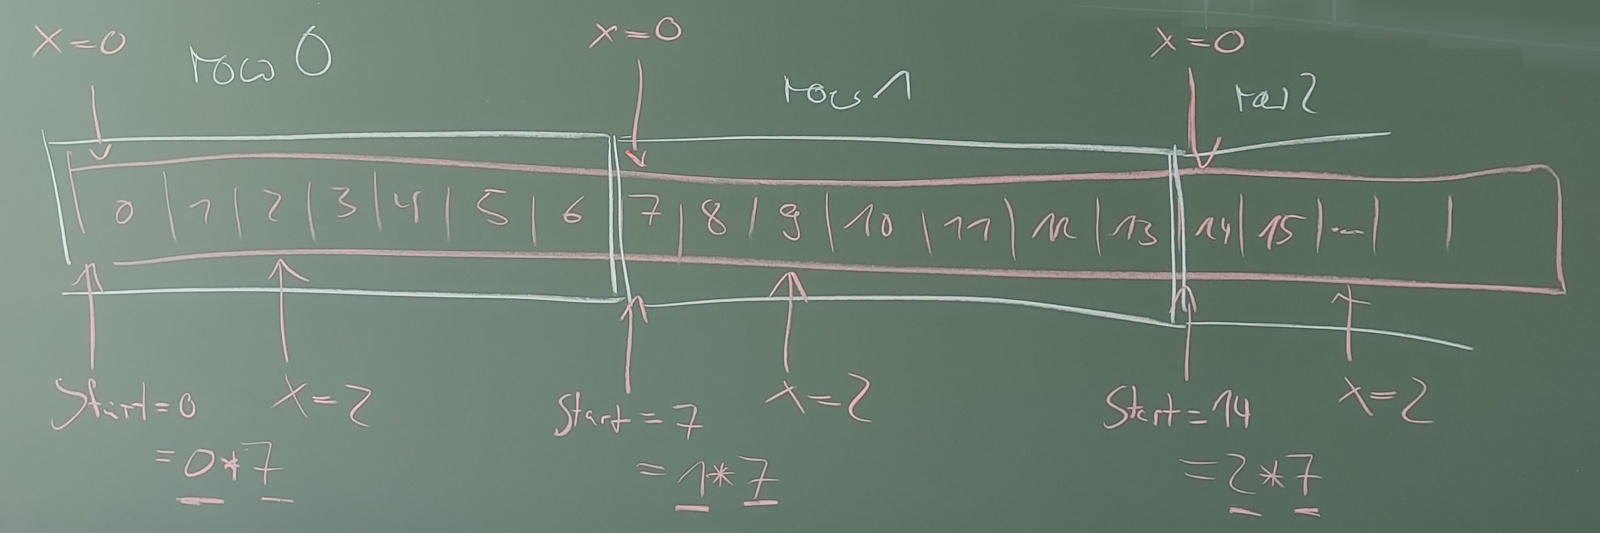 x=0 row 0 x=0 row 1 x=0 row 2
0 | 1 | 2 | 3 | 4 | 5 | 6 | 7 | 8 | 9 | 10 | 11 | 12 | 13 | 14 | 15 | ... | |
Start=0 x=2 Start=7 x=2 Start=14 x=2
=0*7 =1*7 =2*7